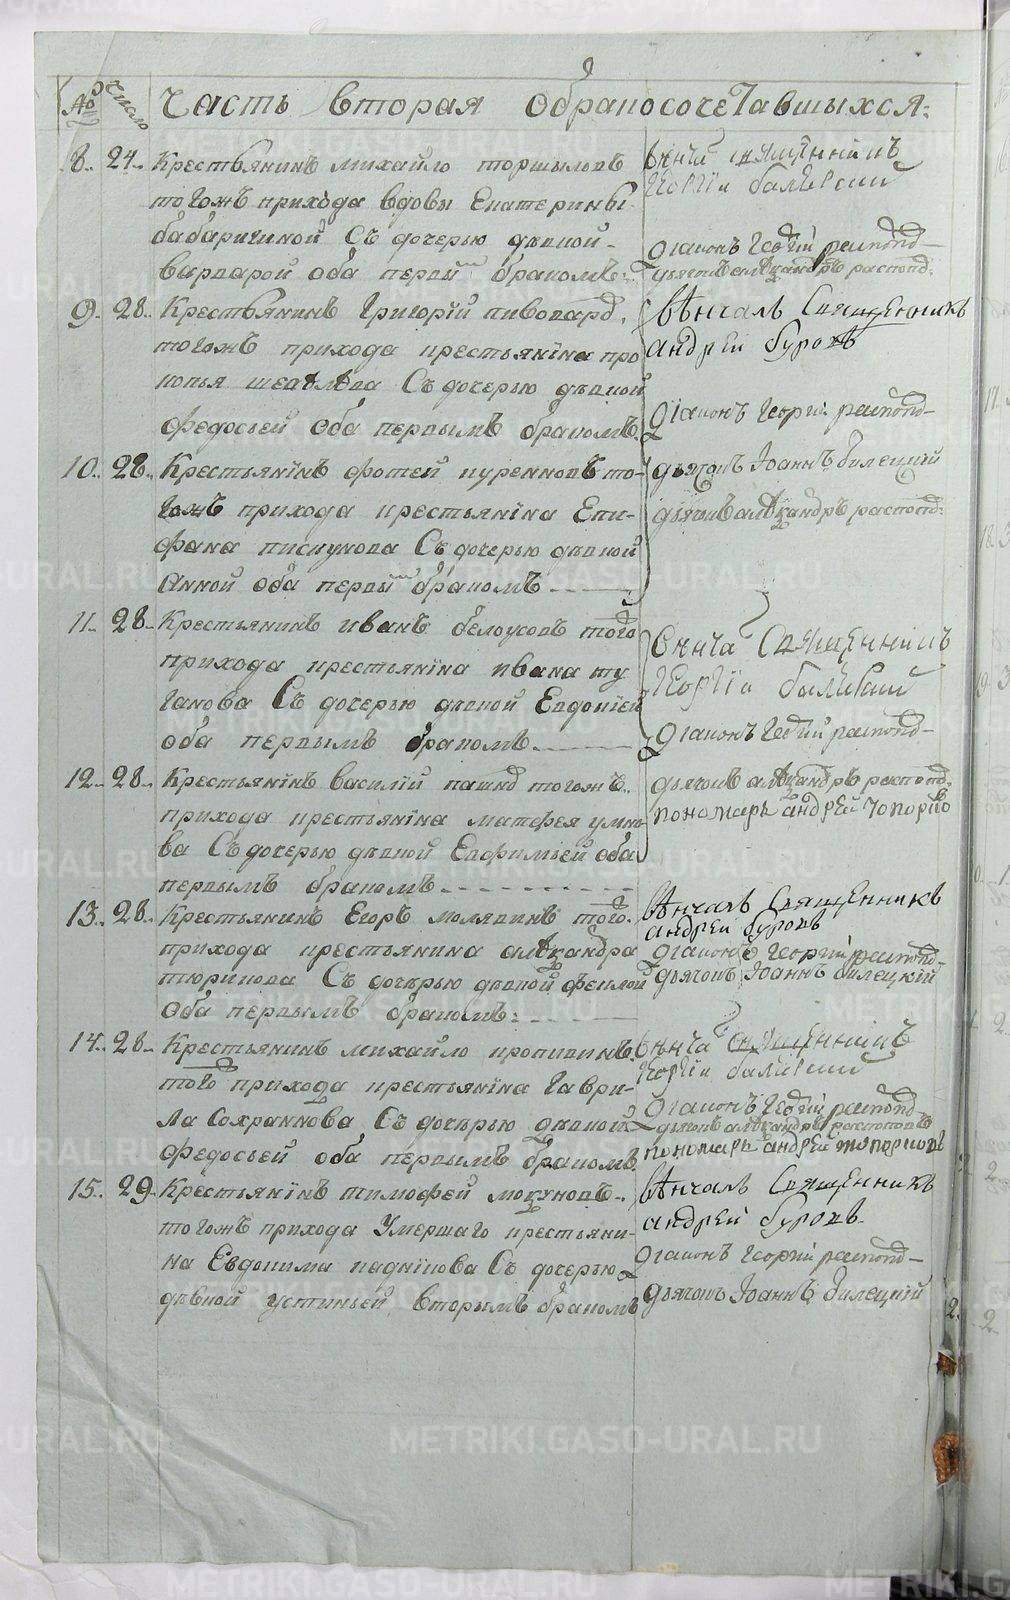 № Число Часть вторая обракосочетавшыхся:
8. 24. Крестьянинъ михайло торшыловъ
тогожъ прихода вдовы Екатерины
бабаригиной Съ дочерью дѣвкой
варварой оба первымъ бракомъ:
вѣнча священникъ
Георгiи
дiаконъ Георгiй распопо
дьячокъ алеѯандръ распопо:
9. 28. Крестьянинъ Григорiй пивовар
тогожъ прихода крестьянiна про
копья Съ дочерью дѣвкой
федосьей оба первымъ бракомъ
вѣнчалъ Священникъ
андрей буровъ
дiаконъ Георгiй распопо
10. 28. Крестьянiнъ фотей куренновъ то-
гожъ прихода крестьянiна Епи-
фана пискунова Съ дочерью дѣвкой
Анной оба первымъ бракомъ
дьячокъ Iоаннъ билецкiй
дьячокъ алеѯандръ распопо:
11. 28. Крестьянинъ иванъ белоусовъ того
прихода крестьянiна ивана ту
ганова Съ дочерью дѣвкой Евдокiей
оба первымъ бракомъ
вѣнча Священникъ
Георгiи
дiаконъ Георгiй распопо
12. 28. Крестьянiнъ василiй тогожъ
прихода крестьянiна матфея
ва Съ дочерью дѣвкой Евфимьей оба
первымъ бракомъ
дьячокъ алеѯандръ распопо:
пономарь андрей топорко
13. 28. Крестьянинъ Егоръ молявинъ того
прихода крестьянина алеѯандра
тюрикова Съ дочерью дѣвкой феклой
оба первымъ бракомъ:
вѣнчалъ Священникъ
андрей буровъ
дiаконъ Георгiй распопо
дьячокъ Iоаннъ билецкiй
14. 28. Крестьянинъ михайло кропивинъ
того прихода крестьянiна гаври-
ла Сохранкова Съ дочерью дѣвкой
федосьей оба первымъ бракомъ
вѣнча священникъ
Георгiи
дiаконъ Георгiй распопо
дьячокъ алеѯандръ распоповъ
пономарь андрей топорковъ
15. 29. Крестьянiнъ тимофей мокуновъ
тогожъ прихода Умершаго крестьяни-
на Евдокима Съ дочерью
дѣвкой устиньей вторымъ бракомъ
вѣнчалъ Священникъ
андрей буровъ
дiаконъ Георгiй распопо
дьячокъ Iоаннъ билецкiй
METRIKI.GASO-URAL.RU